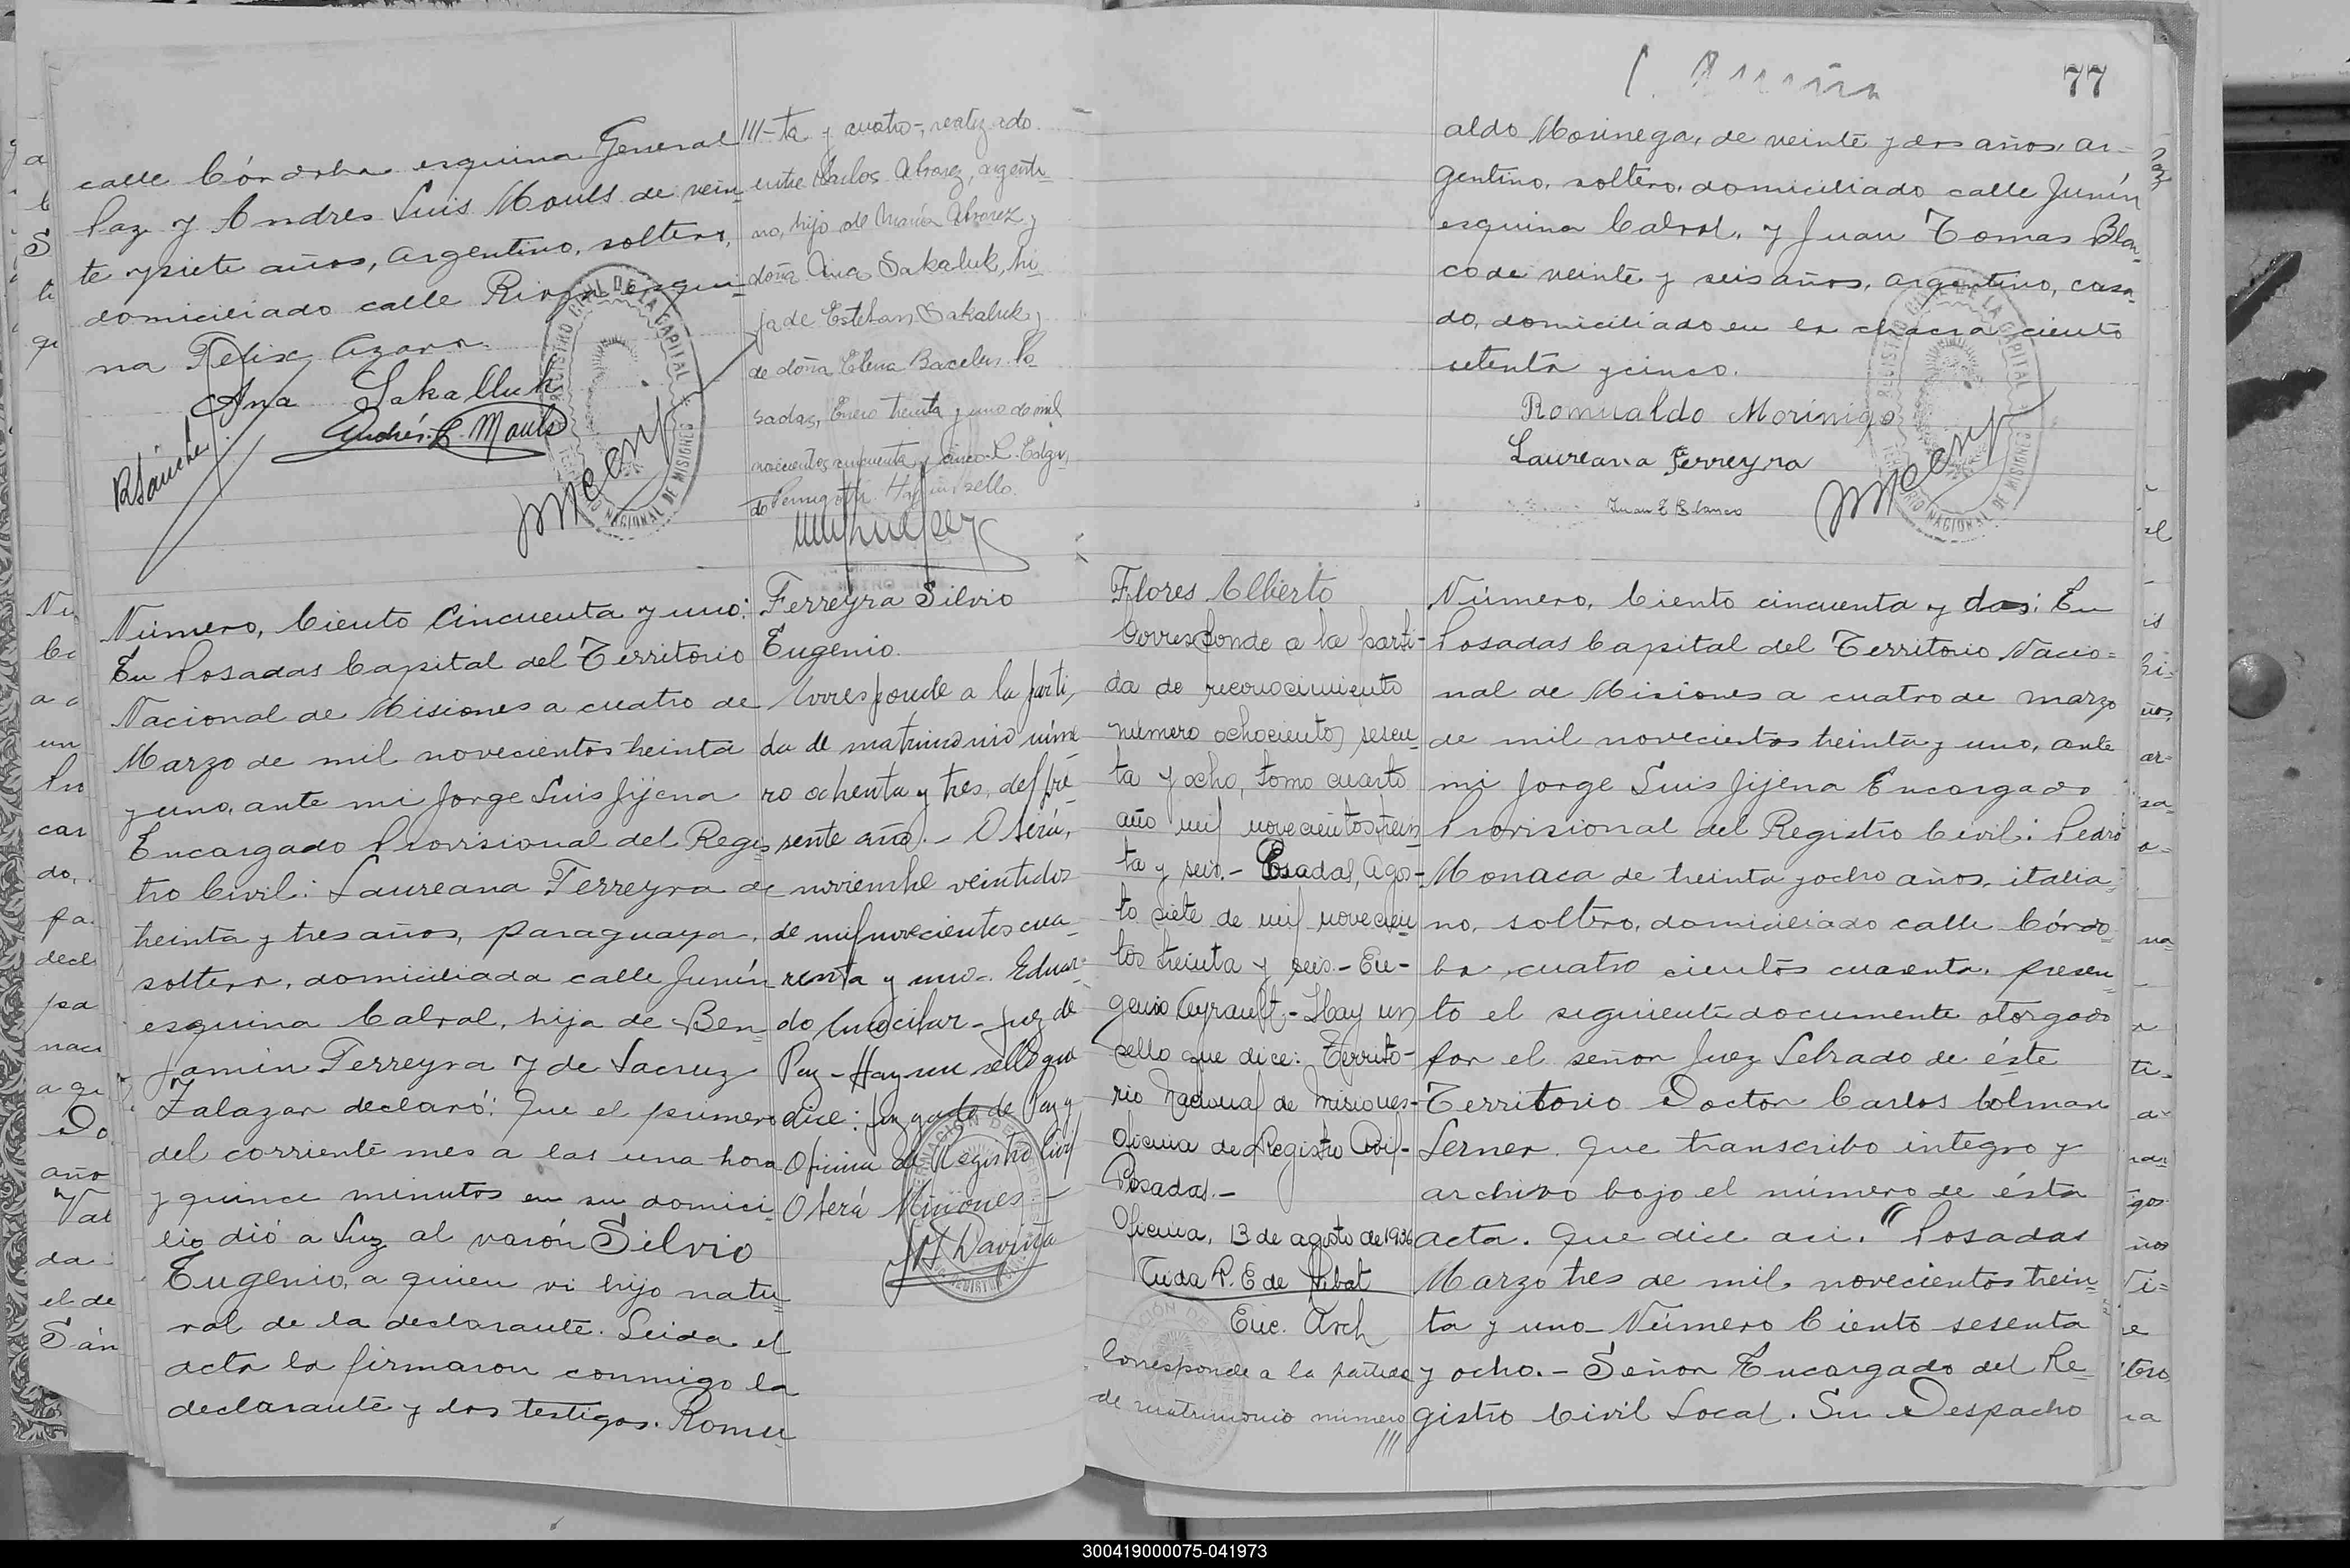 calle Córdoba esquina General
Paz y Andres Luis Mouls de vein
te y siete años, argentino, soltero,
domiciliado calle Rioja esqui-
na Felix Azara.
Ana Sakalluk
Andrés L. Mouls
RSánchez
III-ta y cuatro-, realizado
entre Carlos Alvarez, argenti-
no, hijo de María Alvarez y
doña Ana Sakaluk, hi-
ja de Esteban Sakaluk y
de doña Elena Bacelus. Po-
sadas, Enero treinta y uno de mil
novecientos cincuenta y cinco. R. Edgar
do Hay un sello.
Número, Ciento Cincuenta y uno:
En Posadas Capital del Territorio
Nacional de Misiones a cuatro de
Marzo de mil novecientos treinta
y uno, ante mi Jorge Luis Jijena
Encargado Provisional del Regis
tro Civil: Laureana Ferreyra de
treinta y tres años, paraguaya,
soltera, domiciliada calle Junín
esquina Cabral, hija de Ben
jamin Ferreyra y de Lacruz
Zalazar declaró: Que el primero
del corriente mes a las una hora
y quince minutos en su domici-
lio dió a luz al varón Silvio
Eugenio, a quien vi hijo natu-
ral de la declarante. Leida el
acta la firmaron conmigo la
declarante y dos testigos. Romu-
Ferreyra Silvio
Eugenio.
Corresponde a la parti-
da de matrimonio núme
ro ochenta y tres, del pre-
sente año. - Oberá,
noviembre veintidos
de mil novecientos cua-
renta y uno.- Eduar-
do - Juez de
Paz - Hay un sello que
dice: Juzgado de Paz y
Oficina de Registro Civil
Oberá Misiones -
77
aldo Morinega, de veinte y dos años, ar-
gentino, soltero, domiciliado calle Junín
esquina Cabral, y Juan Tomas Blan-
co de veinte y seis años, argentino, casa-
do, domiciliado en la chacra ciento
setenta y cinco.
Romualdo Morinigo
Laureana Ferreyra
Juan T Blanco
Flores Alberto
Corresponde a la parti-
da de reconocimiento
número ochocientos sesen-
ta y ocho, tomo cuarto
año mil novecientos trein
ta y seis.- Posadas, Agos-
to siete de mil novecien
tos treinta y seis.- Eu-
genio Ceyrault - Hay un
sello que dice: Territo-
rio Nacional de Misiones-
Oficina de Registro Civil-
Posadas.-
Oficina, 13 de agosto de 1936
Enc. Arch
Corresponde a la partida
de matrimonio número
///
Número, Ciento cincuenta y dos: En
Posadas Capital del Territorio Nacio=
nal de Misiones a cuatro de marzo
de mil novecientos treinta y uno, ante
mi Jorge Luis Jijena Encargado
Provisional del Registro Civil: Pedro
Monaca de treinta y ocho años, italia-
no, soltero, domiciliado calle Córdo-
ba cuatro cientos cuarenta. presen-
to el siguiente documento otorgado
por el señor Juez Letrado de éste
Territorio Doctor Carlos Colman
Lerner. Que transcribo integro y
archivo bajo el número de ésta
acta. Que dice asi. " Posadas
Marzo tres de mil novecientos trein-
ta y uno_ Número Ciento sesenta
y ocho.- Señor Encargado del Re-
gistro Civil Local. Su Despacho
300419000075-041973